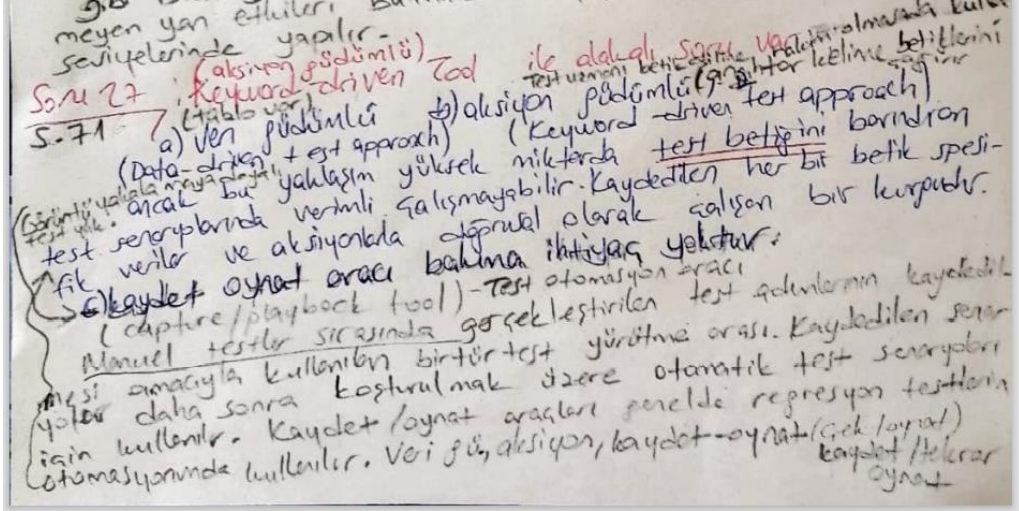 meyen yan etkileri
seviyelerinde yapılır.
Soru 27 : (aksiyon güdümlü)
Keyword-driven Tool ile alakalı soru var
S.71 (tablo var)
Test uzmanı
a) Veri güdümlü b) aksiyon güdümlü (anahtar kelime
(Data-driven test approach) (Keyword-driven test approach)
ancak bu yaklaşım yüksek miktarda test betiğini barındıran
test senaryolarında verimli çalışmayabilir. Kaydedilen her bir betik spesi-
fik veriler ve aksiyonlarla doğrusal olarak çalışan bir kurgudur.
c) kaydet oynat aracı bakıma ihtiyaç yoktur.
(capture/playback tool) - Test otomasyon aracı
Manuel testler sırasında gerçekleştirilen test adımlarının kaydedil
mesi amacıyla kullanılan bir tür test yürütme aracı. Kaydedilen senar
yolar daha sonra koşturulmak üzere otomatik test senaryoları
için kullanılır. Kaydet/oynat araçları genelde regresyon testlerin
otomasyonunda kullanılır. Veri gü, aksiyon, kaydet-oynat (çek/oynat)
kaydet/tekrar
oynat